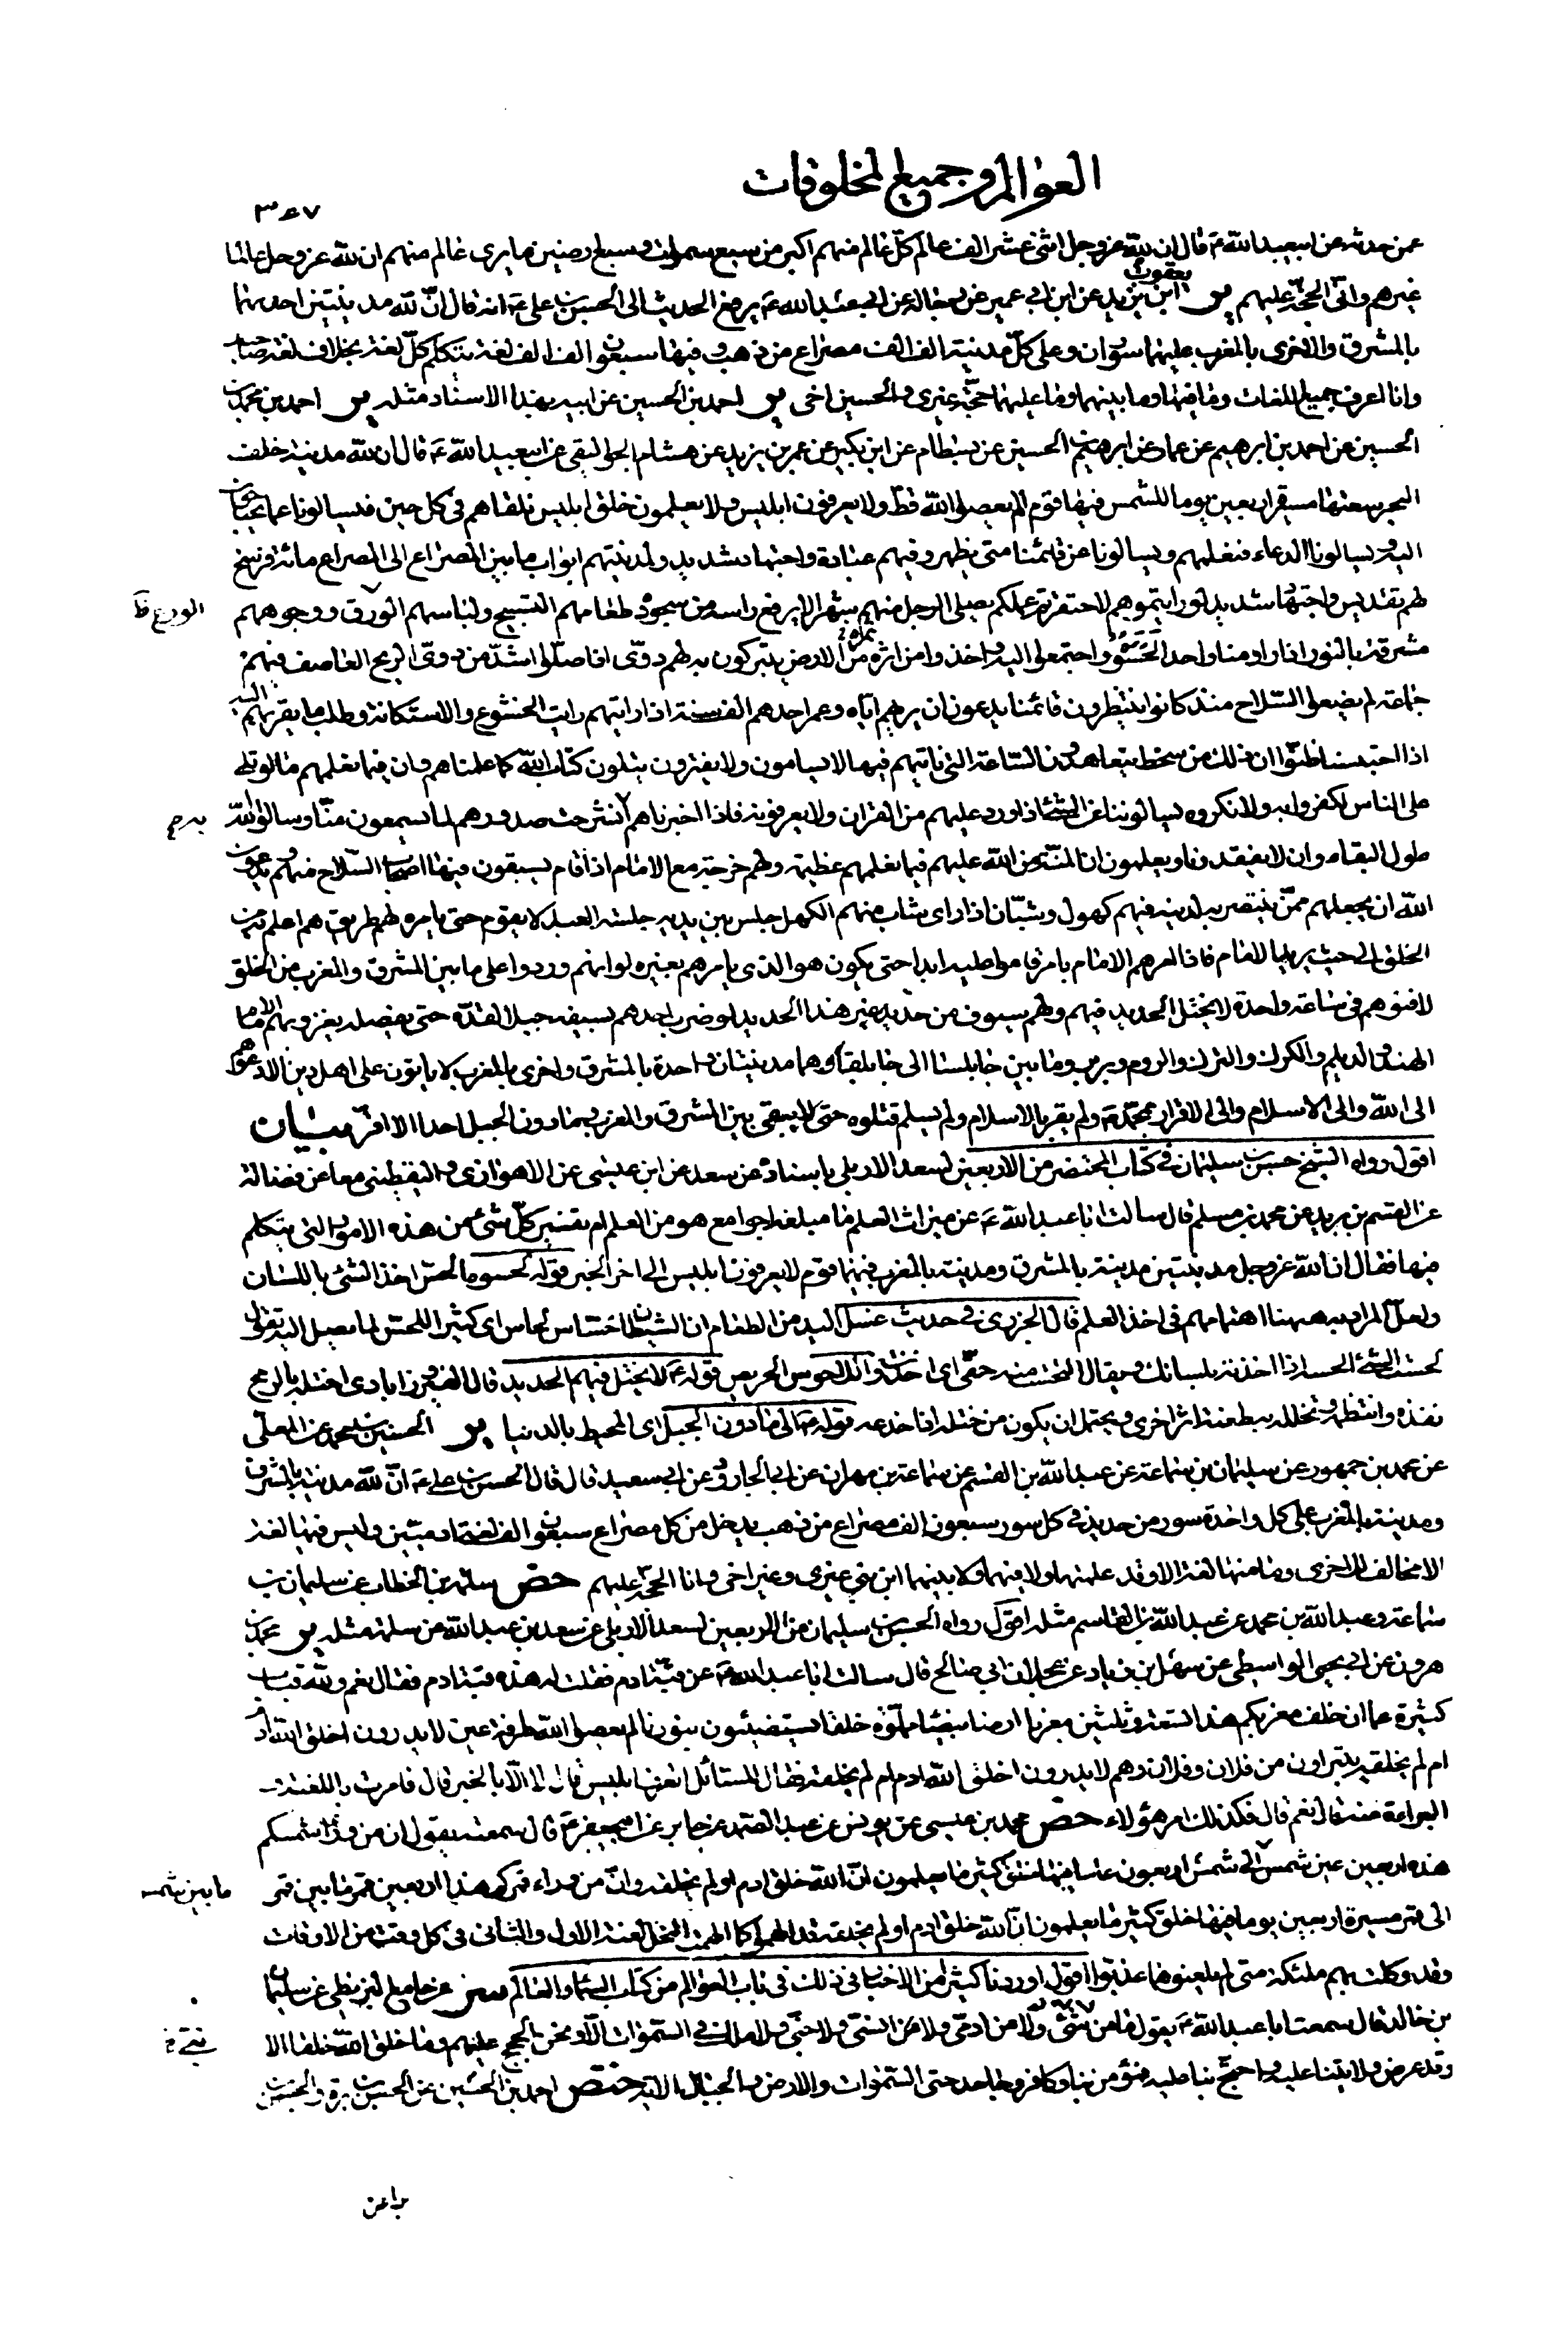 العوالم و جميع المخلوقات
٣٦٧
عمن حدثه عن ابيعبد الله ع قال ان لله عز وجل اثنى عشر الف عالم كل عالم منهم اكبر من سبع سموات و سبع ارضين ما يرى عالم منهم ان لله عز وجل عالما
غيرهم وانى الحجة عليهم ير يعقوب ابن يزيد عن ابن ابى عمير عن رجاله عن ابى عبد الله ع يرفع الحديث الى الحسن بن على ع انه قال ان لله مدينتين احدهما
بالمشرق والاخرى بالمغرب عليهما سوران وعلى كل مدينة الف الف مصراع من ذهب و فيها سبعون الف الف لغة يتكلم كل لغة بخلاف لغة صاحبه
وانا اعرف جميع اللغات وما فيهما وما بينهما وما عليهما حجة غيرى والحسين اخى ير احمد بن الحسين عن ابيه بهذا الاسناد مثله ير احمد بن محمد بن
الحسين عن احمد بن ابرهيم عن عمار عن ابرهيم بن الحسين عن بسطام عن ابن بكير عن عمر بن يزيد عن هشام الجواليقى عن ابيعبد الله ع قال ان لله مدينة خلف
البحر سعتها مسيرة اربعين يوما للشمس فيها قوم لم يعصوا الله قط ولا يعرفون ابليس ولا يعلمون خلق ابليس نلقاهم فى كل حين فيسالونا عما يحتاجون
اليه ويسالونا الدعاء فنعلمهم ويسالونا عن قائمنا متى يظهر وفيهم عبادة واجتهاد شديد ولمدينتهم ابواب ما بين المصراع الى المصراع مائة فرسخ
لهم تقديس واجتهاد شديد لو رايتموهم لاحتقرتم عملكم يصلى الرجل منهم شهرا لا يرفع راسه من سجود طعامهم التسبيح ولباسهم الورق ووجوههم
الورع ظ
مشرقة بالنور اذا راوا منا واحدا لحسوه واجتمعوا اليه واخذوا من اثره من الارض يتبركون به لهم دوى اذا صلوا اشد من دوى الريح العاصف فيهم
جماعة لم يضعوا السلاح منذ كانوا ينتظرون قائمنا يدعون ان يريهم اياه وعمر احدهم الف سنة اذا رايتهم رايت الخشوع والاستكانة وطلب ما يقربهم اليه
اذا احتبسنا ظنوا ان ذلك من سخط يتعاهدون الساعة التى ناتيهم فيها لا يسامون ولا يفترون يتلون كتاب الله كما علمناهم وان فيما نعلمهم ما لو تلى
على الناس لكفروا به ولانكروه يسالوننا عن الشئ اذا ورد عليهم من القران ولا يعرفونه فاذا اخبرناهم به انشرحت صدورهم لما يسمعون منا وسالوا الله
طول البقاء وان لا يفقدونا ويعلمون ان المنة من الله عليهم فيما نعلمهم عظيمة ولهم خرجة مع الامام اذا قام يسبقون فيها اصحاب السلاح منهم ويدعون
الله ان يجعلهم ممن ينتصر به لدينه فيهم كهول وشبان اذا راى شاب منهم الكهل جلس بين يديه جلسة العبد لا يقوم حتى يامره لهم طريق هم اعلم به من
الخلق الى حيث يريد الامام فاذا امرهم الامام بامر قاموا عليه ابدا حتى يكون هو الذى يامرهم بغيره لو انهم وردوا على ما بين المشرق والمغرب من الخلق
لافنوهم فى ساعة واحدة لا يختل الحديد فيهم ولهم سيوف من حديد غير هذا الحديد لو ضرب احدهم بسيفه جبلا لقده حتى يفصله يغزو بهم الامام
الهند والديلم والكرك والترك والروم وبربر وما بين جابلسا الى جابلقا وهما مدينتان واحدة بالمشرق واخرى بالمغرب لا ياتون على اهل دين الا دعوهم
الى الله والى الاسلام والى الاقرار بمحمد ص ومن لم يقر بالاسلام ولم يسلم قتلوه حتى لا يبقى بين المشرق والمغرب وما دون الجبل احد الا اقر بيان
اقول رواه الشيخ حسن بن سليمان فى كتاب المختصر من الاربعين لسعد الاربلى باسناده عن سعد عن ابن عيسى عن الاهوازى واليقطينى معا عن فضالة
عن القسم بن بريد عن محمد بن مسلم قال سالت ابا عبد الله ع عن ميراث العلم ما مبلغه اجوامع هو من العلم ام تفسير كل شئ من هذه الامور التى يتكلم
فيها فقال ان لله عز وجل مدينتين مدينة بالمشرق ومدينة بالمغرب فيهما قوم لا يعرفون ابليس الى اخر الخبر قوله لحسوه اللحس اخذ الشئ باللسان
ولعل المراد به هيهنا اهتمامهم فى اخذ العلم قال الجزرى فى حديث غسل اليد من الطعام ان الشيطان حساس لحاس اى كثير اللحس لما يصل اليه تقول
لحست الشئ الحسه اذا اخذته بلسانك ويقال التحست منه حقى اى اخذته واللاحوس الحريص قوله ع لا يختل فيهم الحديد قال الفيروزابادى اختله بالرمح
نفذه وانتظمه وتخلله به طعنه اثر اخرى ويحتمل ان يكون من ختله اذا خدعه قوله ع الى ما دون الجبل اى المحيط بالدنيا ير الحسين بن محمد عن المعلى
عن محمد بن جمهور عن سليمان بن سماعة عن عبد الله بن القسم عن سماعة بن مهران عن ابى الجارود عن ابى سعيد قال قال الحسن بن على ع ان لله مدينة بالمشرق
ومدينة بالمغرب على كل واحدة سور من حديد فى كل سور سبعون الف مصراع من ذهب يدخل من كل مصراع سبعون الف لغة ادميين وليس فيها لغة
الا مخالف للاخرى وما منها لغة الا وقد علمتها ولا فيهما ولا بينهما ابن نبى غيرى وغير اخى وانا الحجة عليهم خص سلمة بن الخطاب عن سليمان بن
سماعة وعبد الله بن محمد عن عبد الله بن القاسم مثله اقول رواه الحسن بن سليمان من الاربعين لسعد الاربلى عن سعد بن عبد الله عن سلمة مثله ير محمد بن
هرون عن ابى يحيى الواسطى عن سهل بن زياد عن عجلان ابى صالح قال سالت ابا عبد الله ع عن قبة ادم فقلت له هذه قبة ادم فقال نعم ولله قباب
كثيرة اما ان خلف مغربكم هذا تسعة وثلثين مغربا ارضا بيضاء مملوة خلقا يستضيئون بنورنا لم يعصوا الله طرفة عين لا يدرون اخلق الله ادم
ام لم يخلقه يتبراون من فلان وفلان وهم لا يدرون اخلق الله ادم ام لم يخلقه فقال للسائل اتعرف ابليس قال لا الا بالخبر قال فامرت باللعنة
والبراءة منه قال نعم قال فكذلك امر هؤلاء خص محمد بن عيسى عن يونس عن عبد الصمد عن جابر عن ابيجعفر ع قال سمعته يقول ان من وراء شمسكم
هذه اربعين عين شمس الى شمس اربعون عاما فيها خلق كثير ما يعلمون ان الله خلق ادم او لم يخلقه وان من وراء قمركم هذا اربعين قمرا ما بين قمر
ما بين شمس
الى قمر مسيرة اربعين يوما فيها خلق كثير ما يعلمون ان الله خلق ادم او لم يخلقه قد الهموا كما الهمت النحل لعنة الاول والثانى فى كل وقت من الاوقات
وقد وكلت بهم ملئكة متى لم يلعنوهما عذبوا اقول اوردنا كثيرا من الاخبار فى ذلك فى باب العوالم من كتاب السماء والعالم سر عن جامع البزنطى عن سليمان
بن خالد قال سمعت ابا عبد الله ع يقول ما من شئ ولا من ادمى ولا من انسى ولا جنى ولا ملك فى السموات الا ونحن الحجج عليهم وما خلق الله خلقا الا
وقد عرض ولايتنا عليه واحتج بنا عليه فمؤمن بنا وكافر وجاحد حتى السموات والارض والجبال الاية خص احمد بن الحسين عن الحسن بن برة والحسن بن
براعن